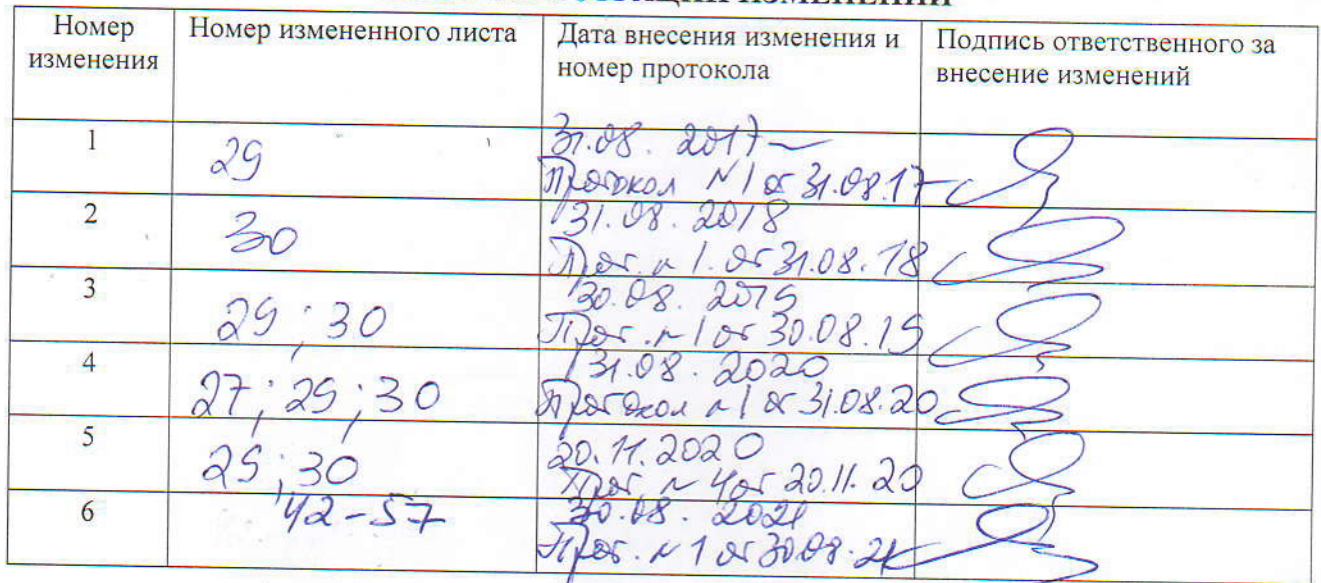 ИЗМЕНЕНИЙ
Номер изменения
Номер измененного листа
Дата внесения изменения и номер протокола
Подпись ответственного за внесение изменений
1
29
31.08.2017
Протокол №1 от 31.08.17
2
30
31.08.2018
Прот. №1. от 31.08.18
3
29; 30
30.08.2019
Прот. №1 от 30.08.19
4
27; 29; 30
31.08.2020
Протокол №1 от 31.08.20
5
29; 30
20.11.2020
Прот №4 от 20.11.20
6
42-57
30.08.2021
Прот. №1 от 30.08.21